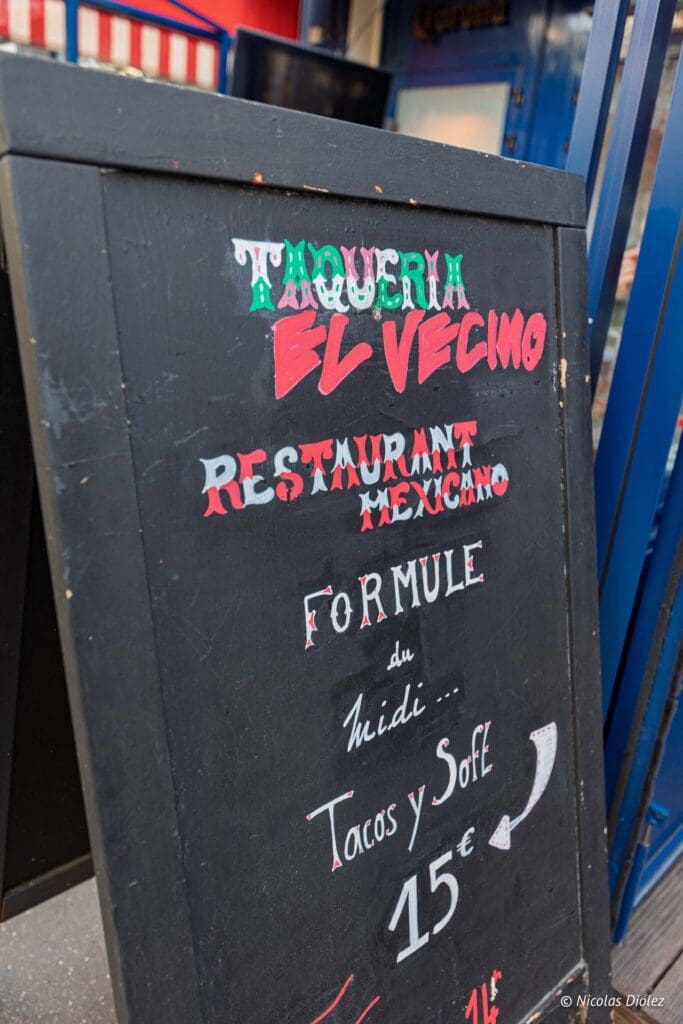 Corona
TAQUERIA
EL VECINO
RESTAURANT
MEXICANO
FORMULE
du
Midi...
Tacos y Soft
15€
14€
© Nicolas Diolez